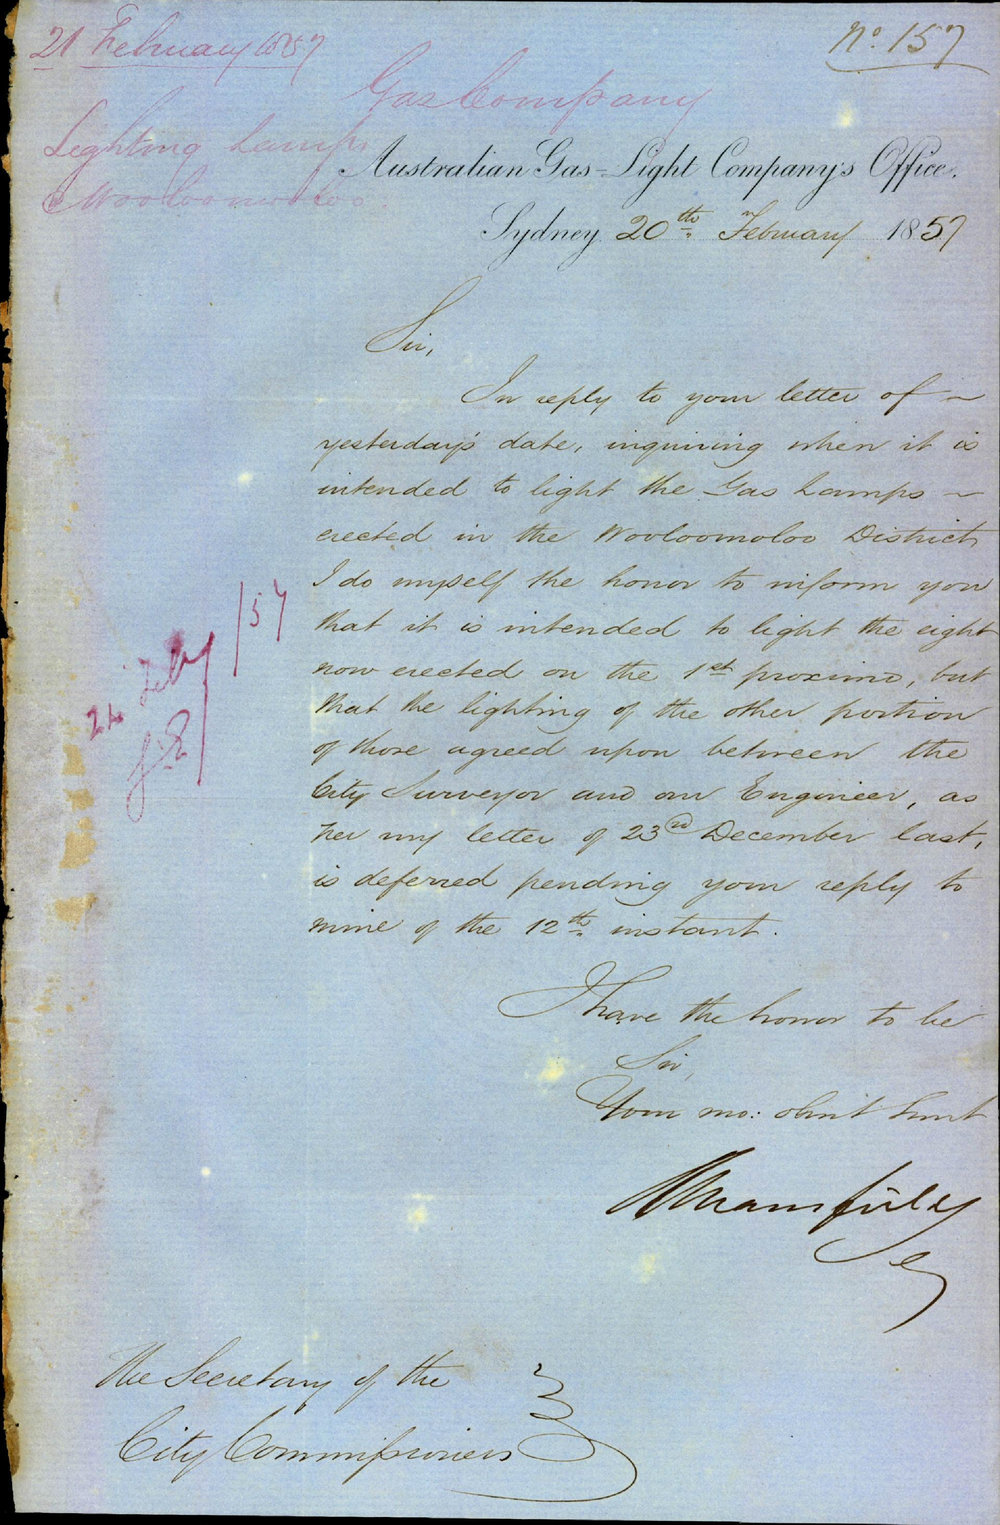 21 February 1857
No. 157
Gas Company
Lighting Lamps
Wooloomooloo.
Australian Gas-Light Company's Office.
Sydney 20th February 1857
Sir,
In reply to your letter of
yesterday's date, inquiring when it is
intended to light the Gas Lamps
erected in the Wooloomoloo District
I do myself the honor to inform you
that it is intended to light the eight
now erected on the 1st proximo, but
that the lighting of the other portion
of those agreed upon between the
City Surveyor and our Engineer, as
per my letter of 23rd December last,
is deferred pending your reply to
mine of the 12th instant.
I have the honor to be
Sir,
Your mo: obnt. Servt
Mansfield
Sey
The Secretary of the
City Commissioners
Feby /57